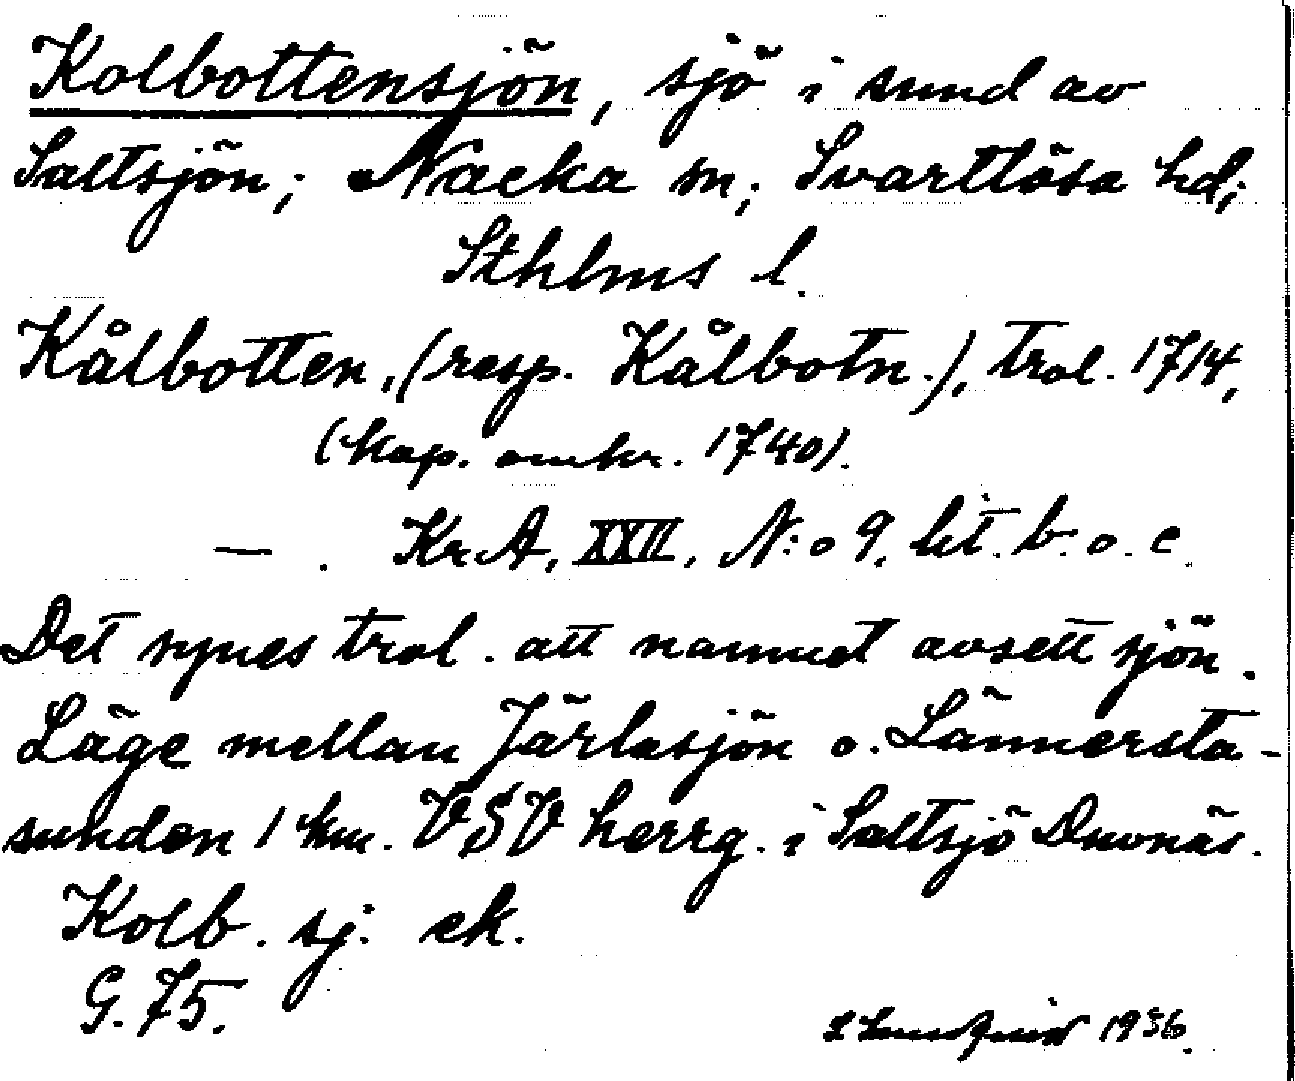 Kolbottensjön, sjö i sund av
Saltsjön; Nacka sn; Svartlösa hd;
Sthlms l.
Kålbotten, (resp. Kålbotn.), trol. 1714,
(kop. omkr. 1740).
— . KrA, XXII, N:o 9. lit. b. o. c.
Det synes trol. att namnet avsett sjön.
Läge mellan Järlasjön o. Lännersta-
sunden 1 km. VSV herrg. i Saltsjö Duvnäs.
Kolb. sj. ek.
G. 75.
1936.